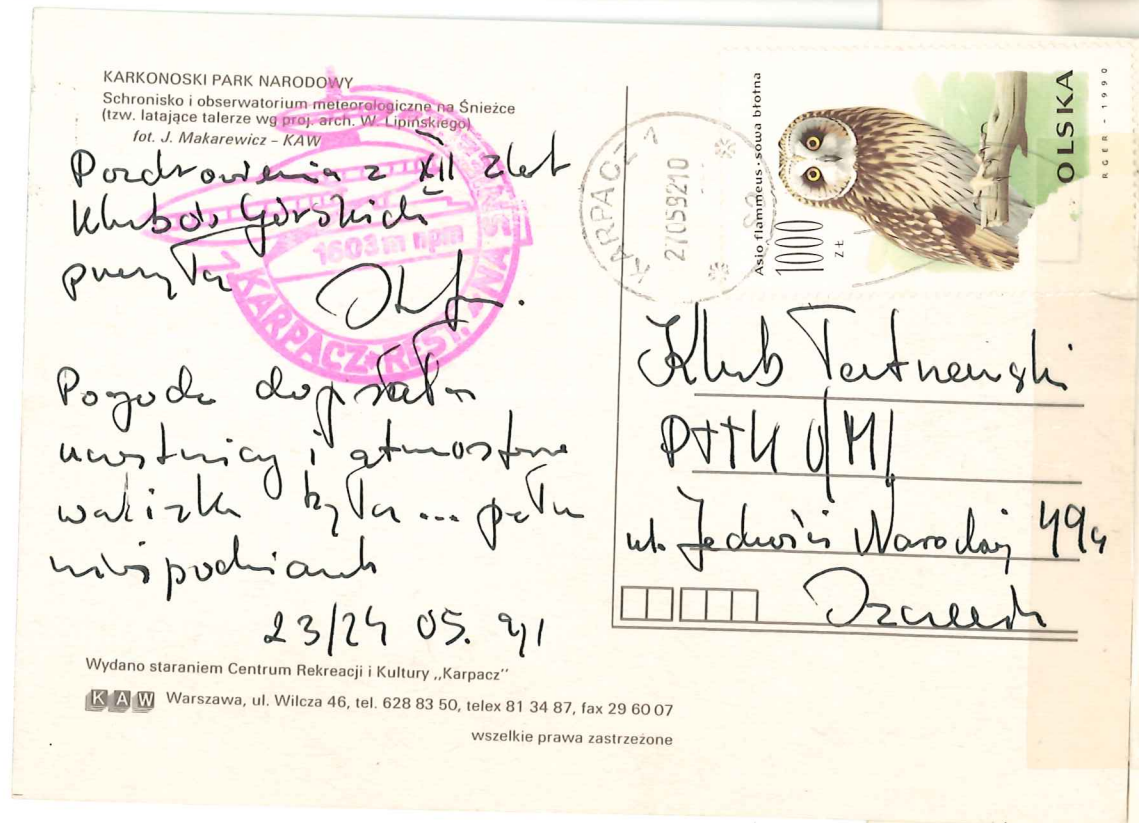 KARKONOSKI PARK NARODOWY
Schronisko i obserwatorium meteorologiczne na Śnieżce
(tzw. latające talerze wg proj. arch. W. Lipińskiego)
fot. J. Makarewicz – KAW
Pozdrowienia z XII zlot
Klubów Górskich
przesyła
Pogoda dopisała
uczestnicy i atmosfera
była ... pełna
niespodzianek
23/24 05. 91
Wydano staraniem Centrum Rekreacji i Kultury „Karpacz”
KAW Warszawa, ul. Wilcza 46, tel. 628 83 50, telex 81 34 87, fax 29 60 07
wszelkie prawa zastrzeżone
1603 m npm
KARPACZ REST. NA
KARPACZ 1
27059210
Asio flammeus · sowa błotna
1000
ZŁ
OLSKA
RGER - 1990
Klub Tatrzański
PTTK O/M
ul. Jedności Narodowej 49a